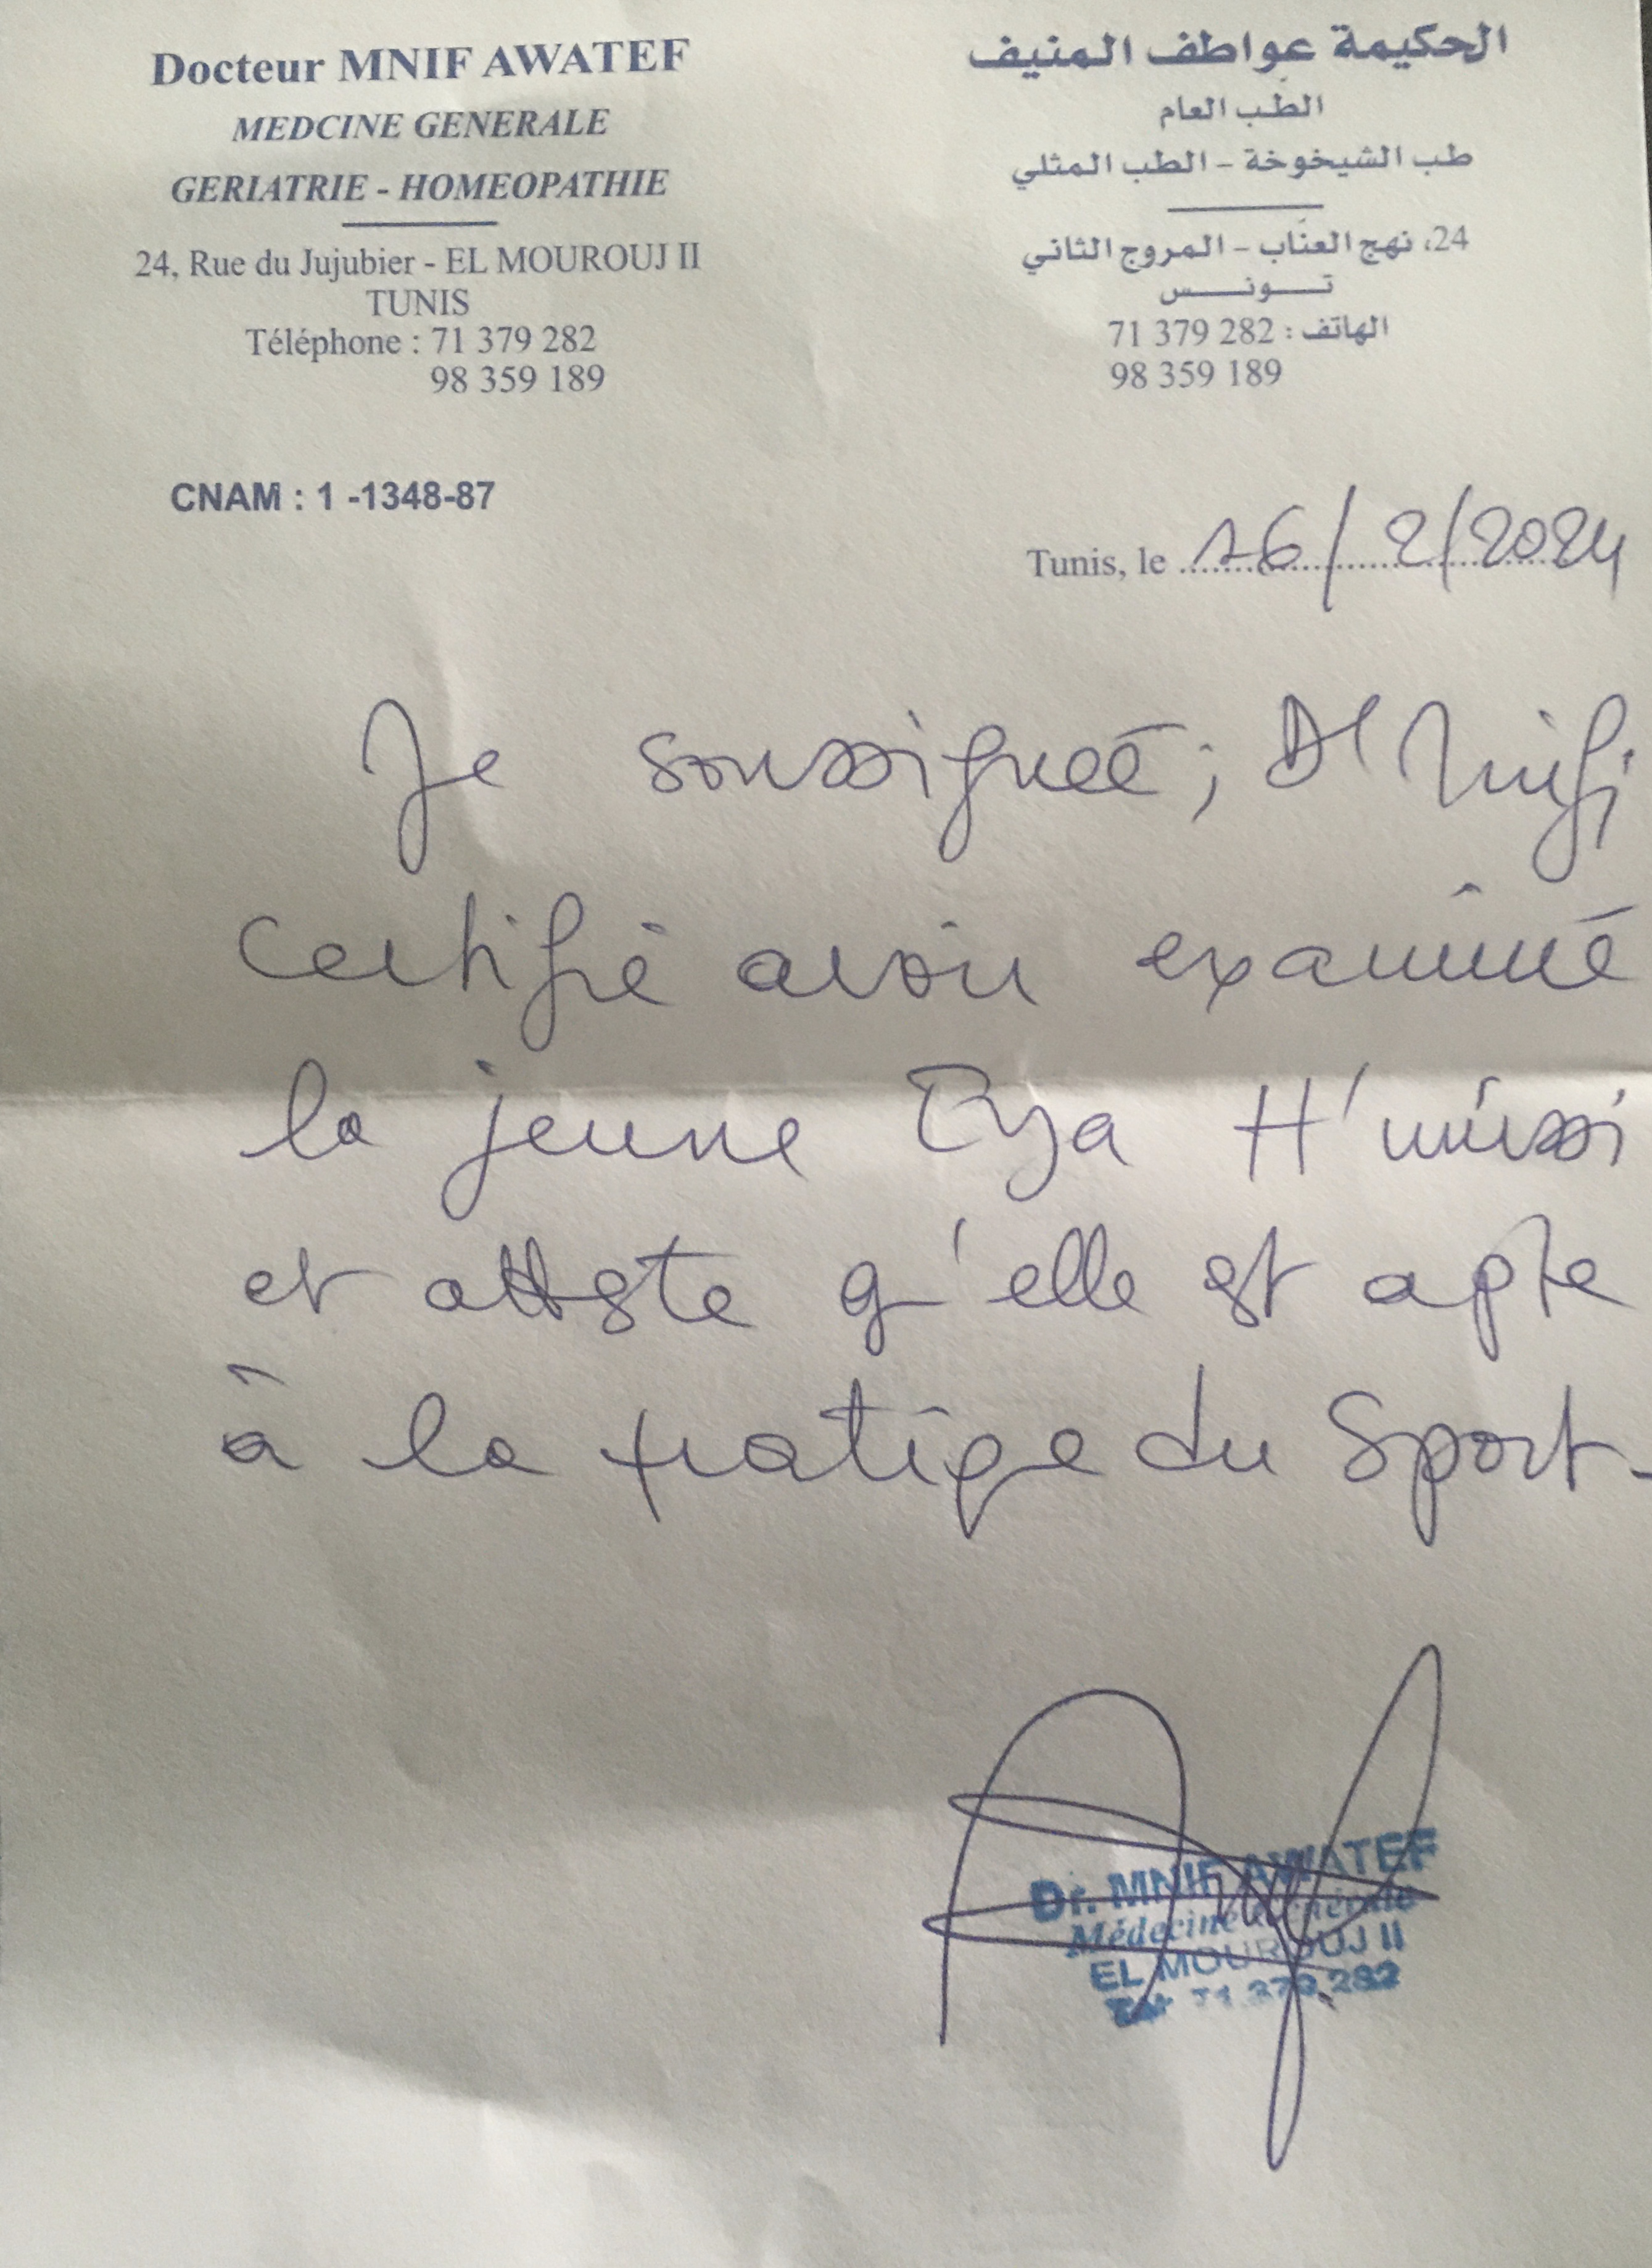 Docteur MNIF AWATEF
MEDCINE GENERALE
GERIATRIE - HOMEOPATHIE
24, Rue du Jujubier - EL MOUROUJ II
TUNIS
Téléphone : 71 379 282
98 359 189
CNAM : 1 -1348-87
الحكيمة عواطف المنيف
الطب العام
طب الشيخوخة - الطب المثلي
24، نهج العناب - المروج الثاني
تونس
الهاتف : 71 379 282
98 359 189
Tunis, le 16/2/2024
Je soussignée ; Dr Mnif,
certifié avoir examiné
la jeune Eya H'
et atteste q'elle est apte
à la pratiqe du Sport-
Dr. MNIF AWATEF
Médecine Générale
EL MOUROUJ II
Tel: 71 379 282